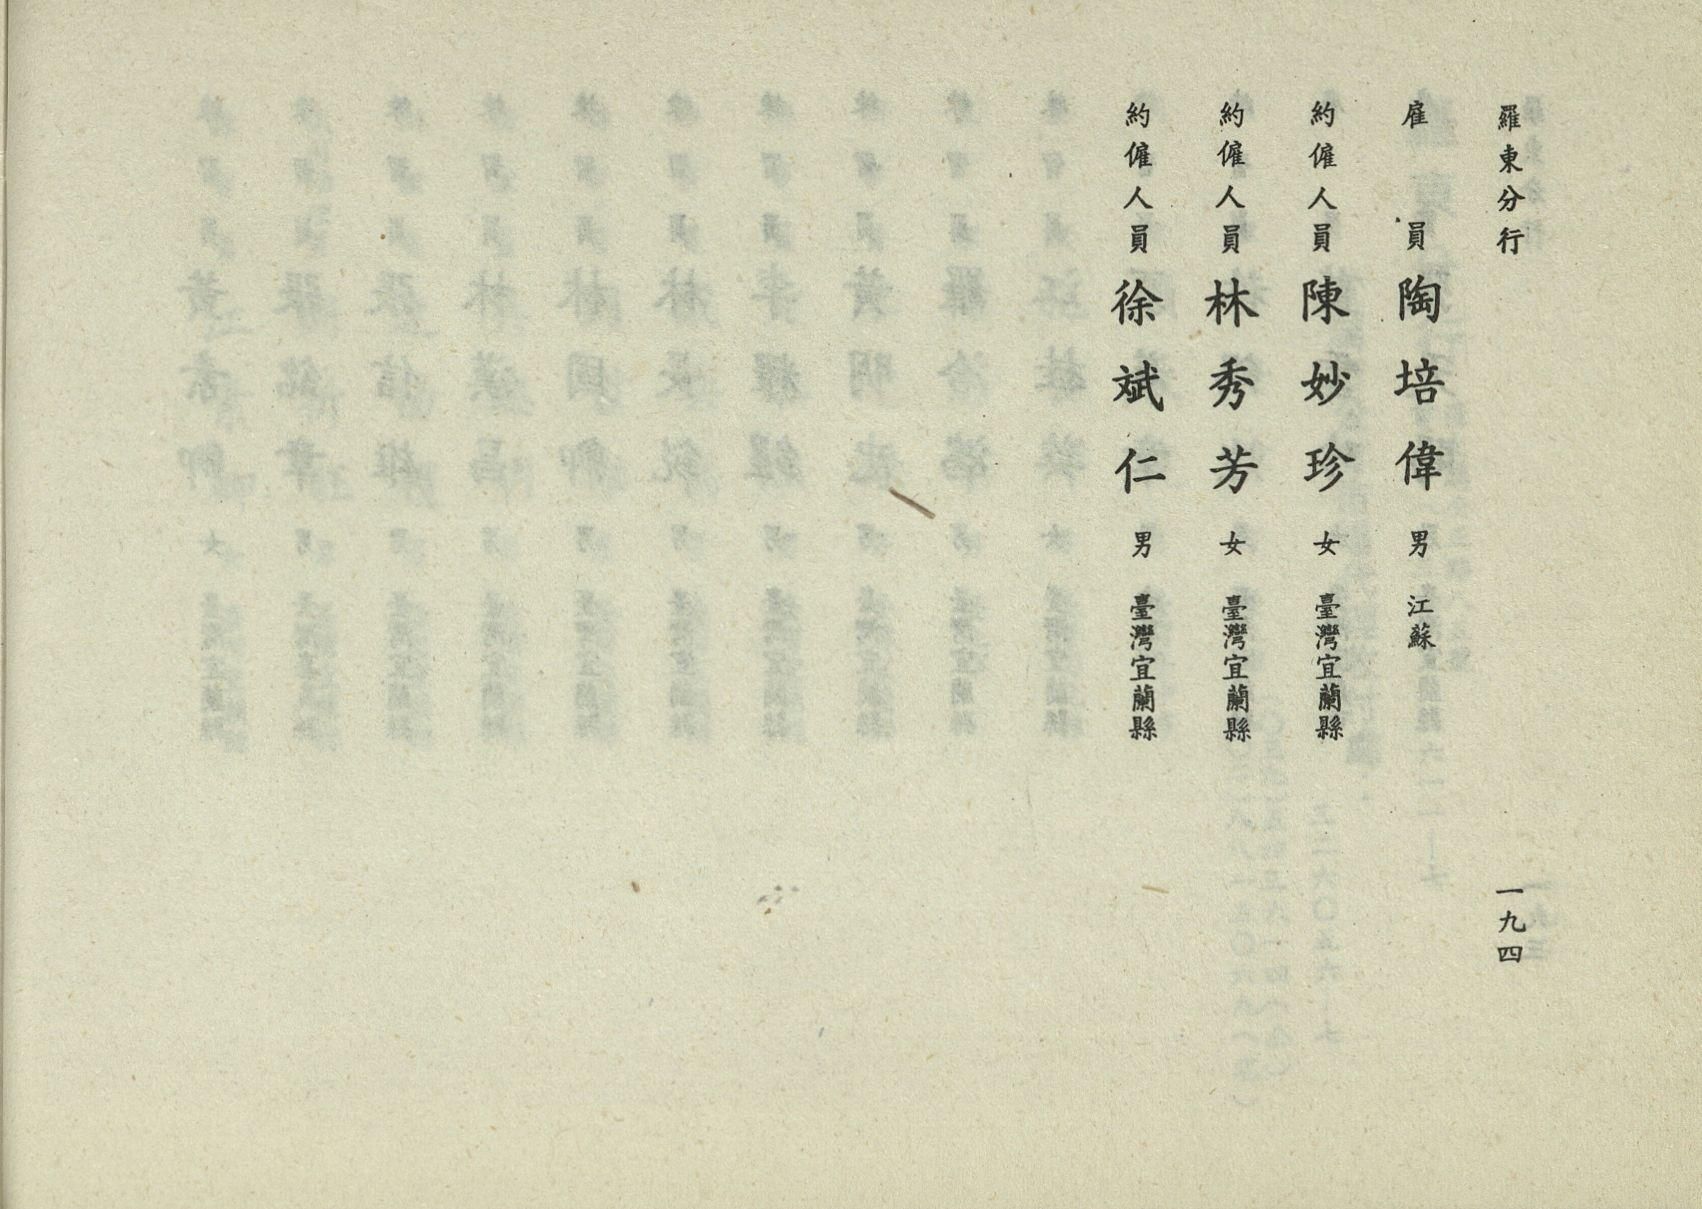 羅東分行 一九四
雇員 陶培偉 男 江蘇
約僱人員 陳妙珍 女 臺灣宜蘭縣
約僱人員 林秀芳 女 臺灣宜蘭縣
約僱人員 徐斌仁 男 臺灣宜蘭縣